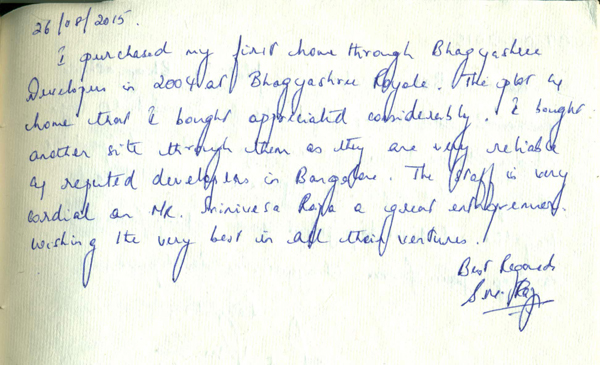 26/08/2015.
I purchased my first home through Bhagyashree
Developers in 2004 at Bhagyashree Royale. The plot &
home that I bought appreciated considerably. I bought
another site through them as they are very reliable
& reputed developers in Bangalore. The staff is very
cordial an Mr. Srinivasa Raja a great entrepreneur.
wishing the very best in all their ventures.
Best Regards